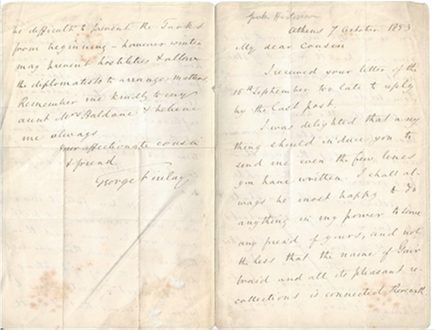 Athens 7 October 1853
My dear cousin
I received your letter of the
18th September too late to reply
by the last post.
I was delighted that any
thing should induce you to
send me even the few lines
you have written. I shall al-
ways be most happy to do
anything in my power to serve
any friend of yours, and not
the less that the name of
and all its pleasant re-
collections is connected therewith
be difficult to prevent the Turks
from beginning - however winter
may prevent hostilities & allow
the diplomatists to arrange matters
Remember me kindly to my
aunt Mrs & believe
me always
your affectionate cousin
& friend
George Finlay